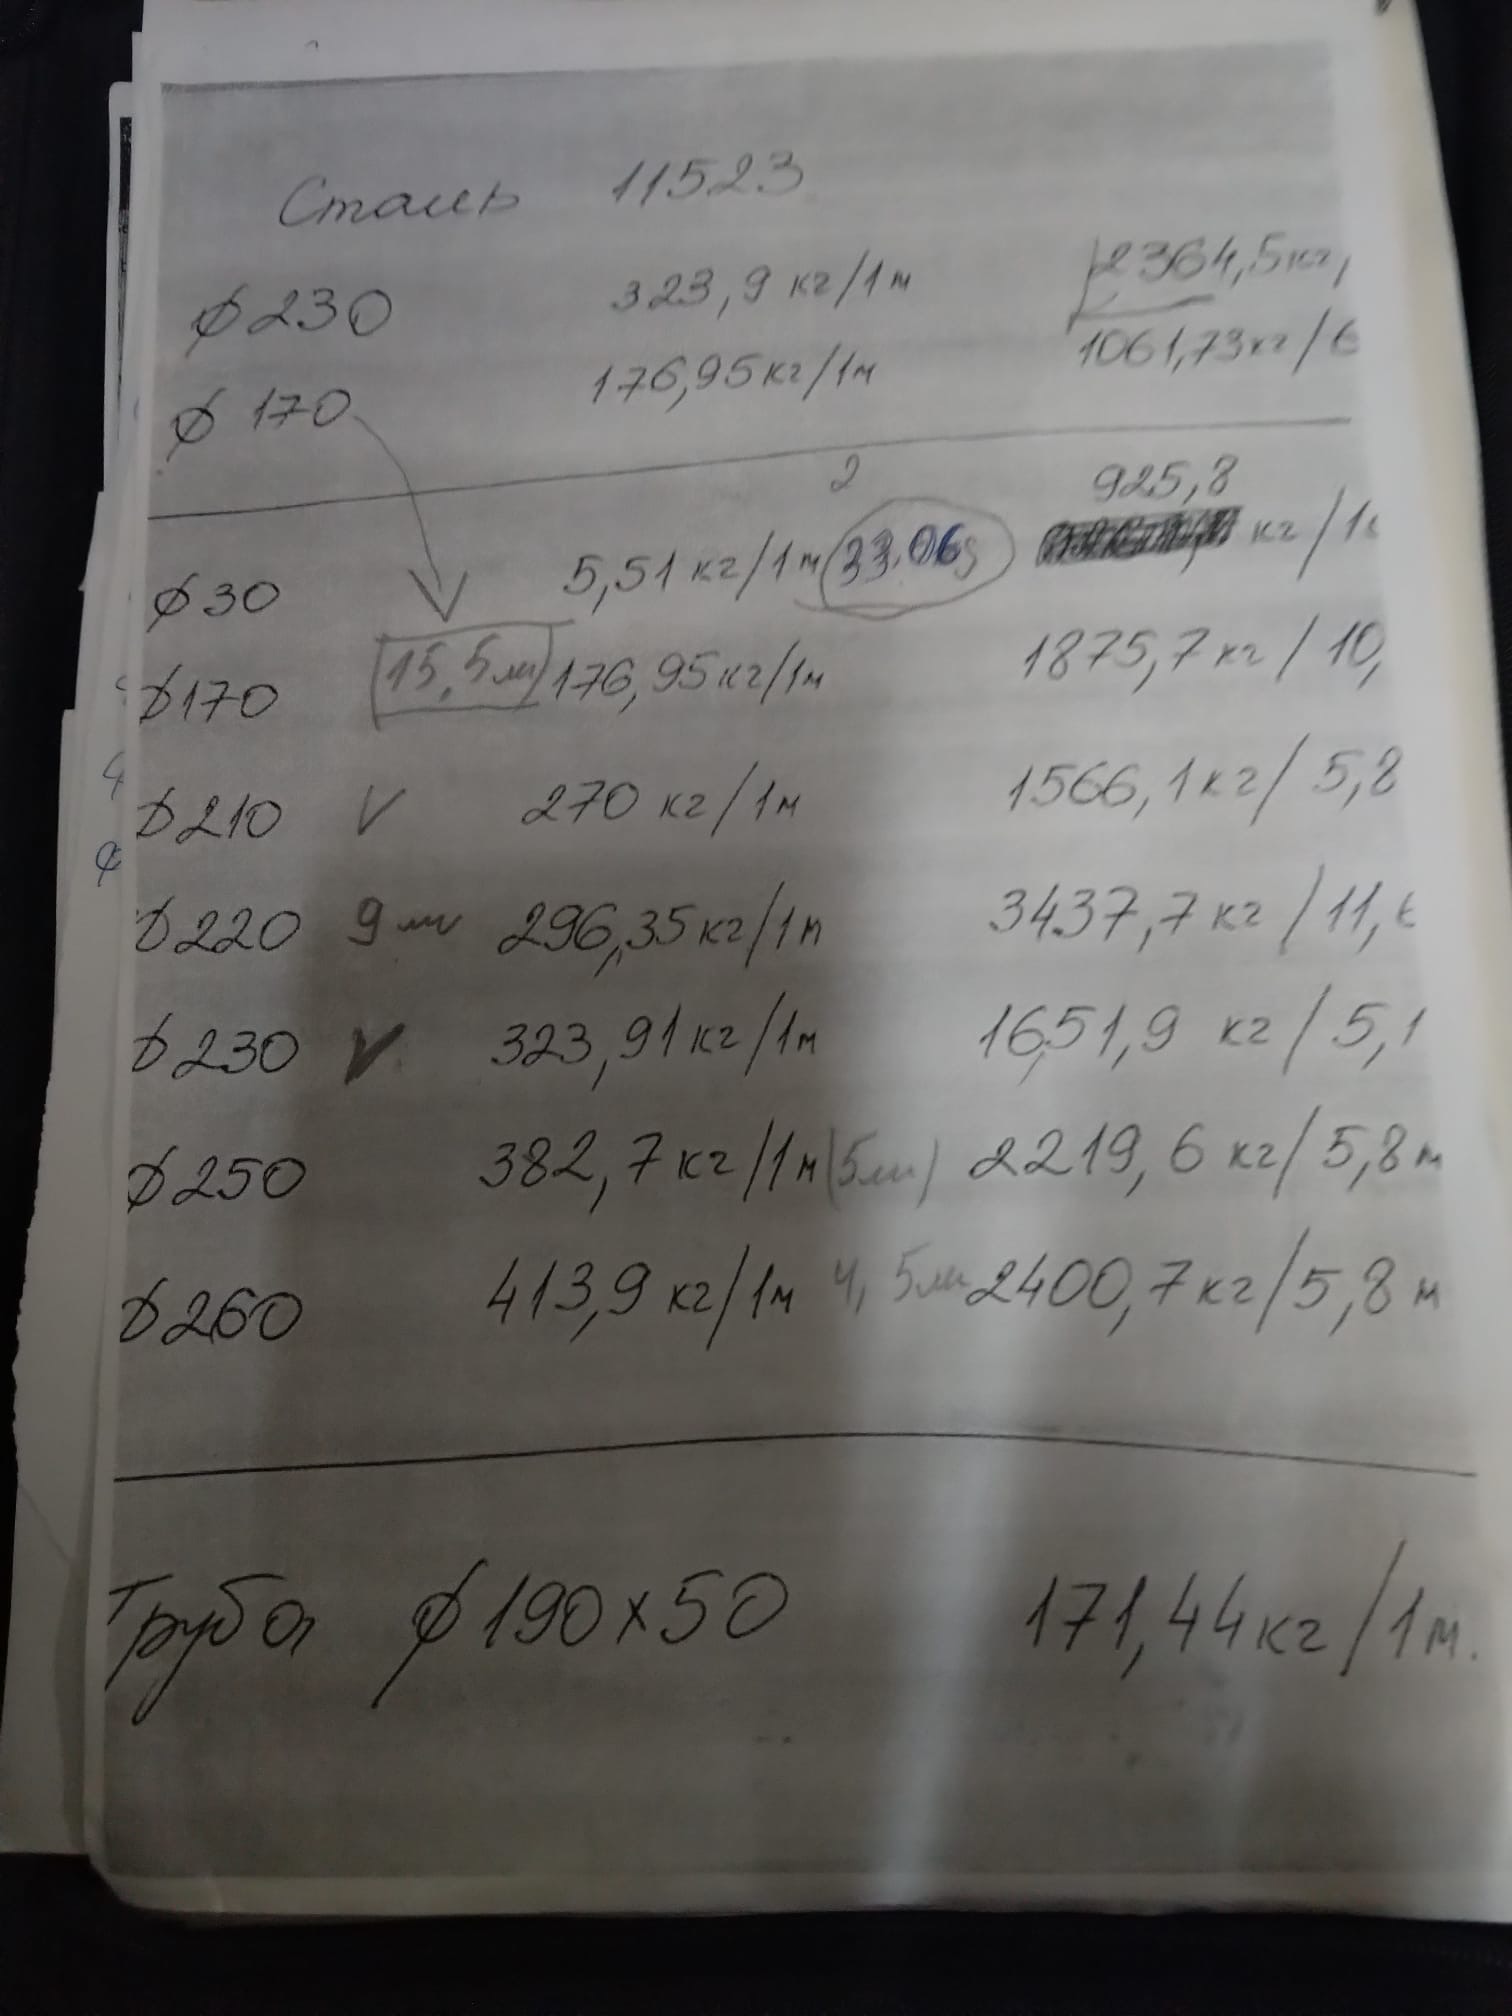 Сталь 11523
⌀230 323,9 кг/1м 2364,5кг,
⌀170 176,95кг/1м 1061,73кг/6
2 925,8
⌀30 5,51 кг/1м 33.06 кг/1
⌀170 15,5м 176,95кг/1м 1875,7кг/10,
⌀210 V 270 кг/1м 1566,1кг/5,8
⌀220 9м 296,35кг/1м 3437,7кг/11,6
⌀230 V 323,91кг/1м 1651,9 кг/5,1
⌀250 382,7кг/1м (5м) 2219,6 кг/5,8м
⌀260 413,9кг/1м 4,5м 2400,7кг/5,8м
Труба ⌀190х50 171,44кг/1м.